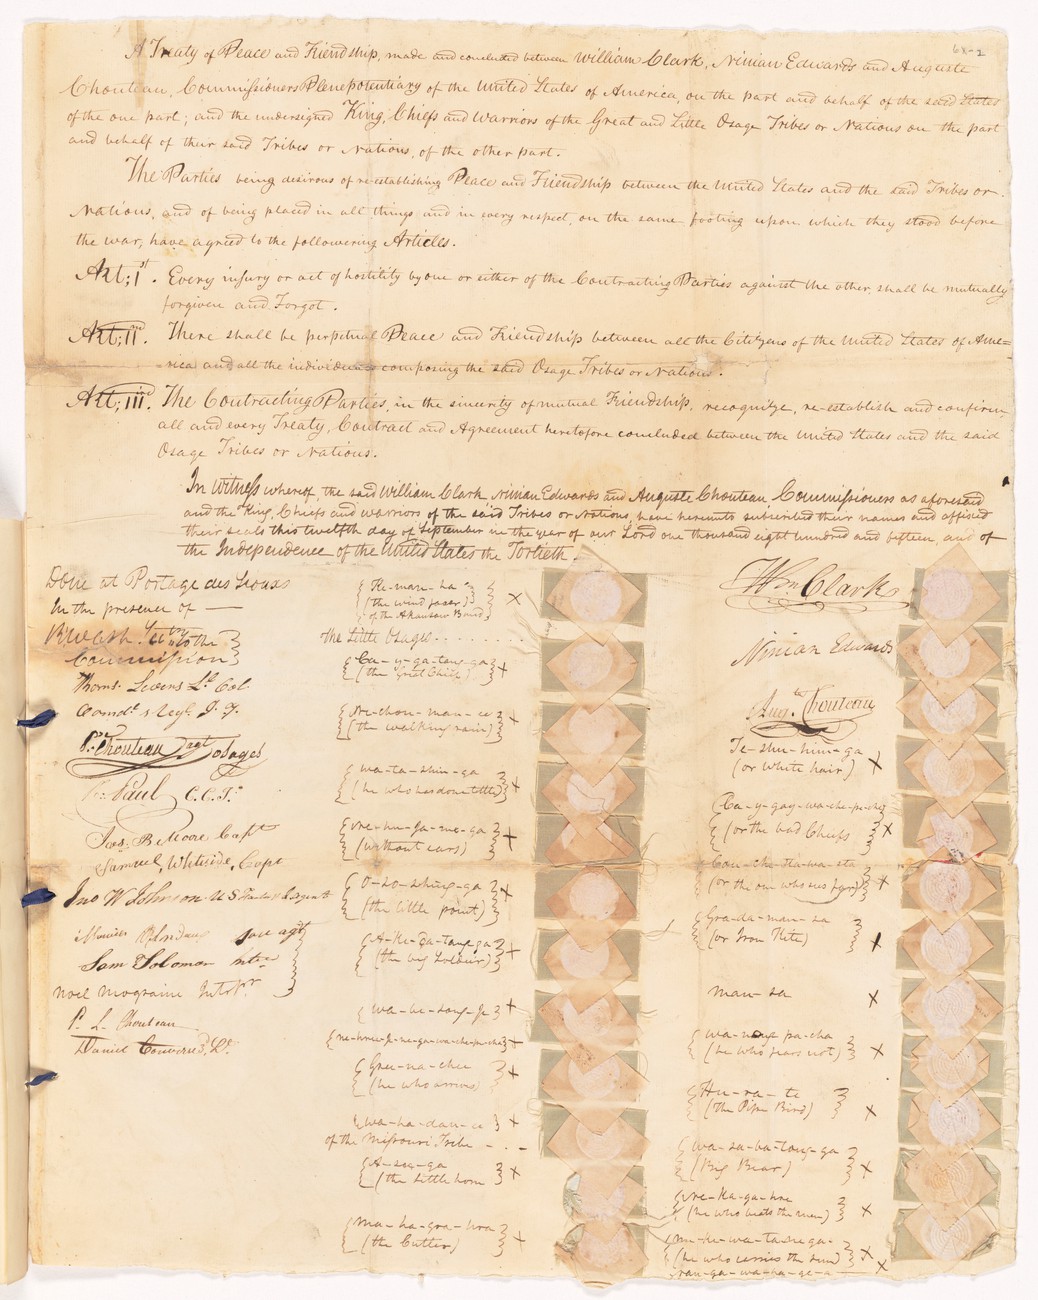 A Treaty of Peace and Friendship, made and concluded between William Clark, Ninian Edwards and Auguste
Chouteau, Commissioners Plenepotentiary of the United States of America, on the part and behalf of the said States
of the one part; and the undersigned King, Chiefs and Warriors of the Great and Little Osage Tribes or Nations on the part
and behalf of their said Tribes or Nations, of the other part.
The Parties being desirous of re-establishing Peace and Friendship between the United States and the said Tribes or
Nations, and of being placed in all things and in every respect, on the same footing upon which they stood before
the war, have agreed to the followering Articles.
Art; 1st. Every injury or act of hostility by one or either of the Contracting Parties against the other, shall be mutually
forgiven and Forgot.
Art; II nd. There shall be perpetual Peace and Friendship between all the Citizens of the United States of Ame=
rica and all the individuals composing the said Osage Tribes or Nations.
Art; III rd. The Contracting Parties, in the sincerity of mutual Friendship, recognize, re-establish and confirm
all and every Treaty, Contract and Agreement heretofore concluded between the United States and the said
Osage Tribes or Nations.
In Witness whereof, the said William Clark Ninian Edwards and Auguste Chouteau Commissioners as aforesaid
and the King, Chiefs and warriors of the said Tribes or Nations, have hereunto subscribed their names and affixed
their seals this twelfth day of September in the year of our Lord one thousand eight hundred and fifteen, and of
the Independence of the United States the Fortieth.
Done at Portage des Sioux
In the presence of —
R. Wash Secty to the
Commission
Thoms. Levens Lt. Col
Comdt 1 Regt I. T.
P. Chouteau Agt Osages
Paul C.C.T.
Jas. B. Moore Capt
Samuel Whiteside, Capt
Jno W. Johnson U S Factor & I agent
Maurice Blondeau
Sam Solomon Intr
Noel Mograine Intrpr
P. L. Chouteau
Daniel Converse, Lt.
Ke-man-ha
(the wind racer) x
of the Akansaw Band
The Little Osages
Ca-y-ga-tang-ga
(the Great Chief) x
Ne-chou-man-ee
(the walking rain) x
Wa-ta-shin-ga
(he who has done little) x
Ne-hu-ja-me-ga
(without ears) x
O-so-shing-ga
(the little point) x
A-ke-da-tang-ga
(the big Soldier) x
Wa-be-song-je x
Ne-hreu-je-ne-ga-wa-che-pe-che x
Gree-na-chee
(he who arrives) x
Wa-ha-dan-ee x
of the Missouri Tribe
A-see-ga
(the little horn x
Ma-ha-gra-hra
(the Cutter) x
Wm. Clark
Ninian Edwards
Aug. te Chouteau
Te-shu-him-ga
(or white hair) x
Ca-y-gay-wa-che-pe-che
(or the bad Chief) x
Cou-che-sta-wa-sta
(or the one who sees far) x
Gra-da-man-sa
(or Iron Kite) x
Man-sa x
Wa-nang-pa-cha
(he who fears not) x
Hu-ra-te
(the Pipe Bird) x
Wa-sa-ba-tang-ga
(Big Bear) x
Ne-ka-ga-hre
(he who beats the men) x
Me-he-wa-ta-ne-ga
(he who carries the sun) x
Nan-ga-wa-ha-ge-a x